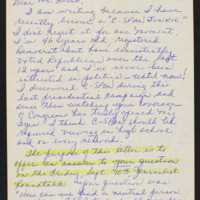 Dear Mr. Lamb,
I am writing because I have
recently become a "C-SPAN Junkie"
I don't regret it for one moment.
I'm 46 years old, registered
Democrat but have consistently
voted Republican over the last
12 years and I've never been
interested in politics - until now!
I discovered C-SPAN during this
last presidential campaign and
since then watching your coverage
of Congress has truly opened my
eyes. I think C-SPAN should be
required viewing in high school
and on every network.
The purpose of this letter is to
offer an answer to your question
on the Friday, Sept. 9/03 Journalist
Roundtable. Your question was:
"How can we find a neutral person